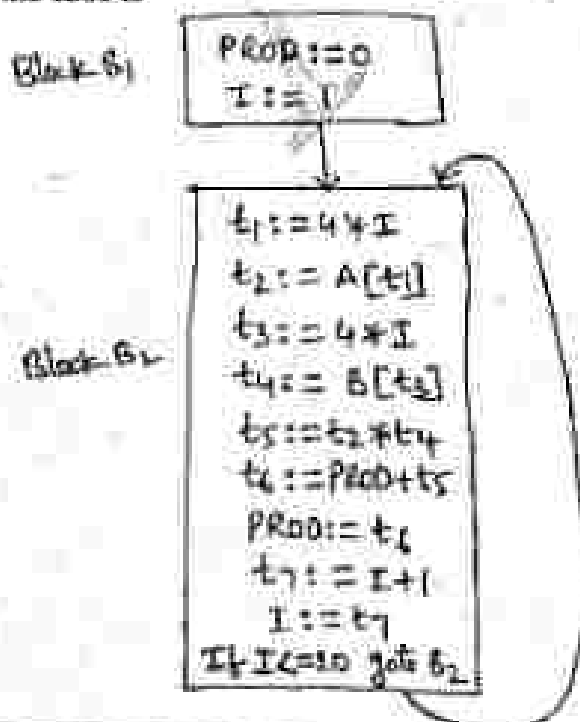 Block B1
PROD:=0
I:=1
Block B2
t1:=4*I
t2:=A[t1]
t3:=4*I
t4:=B[t3]
t5:=t2*t4
t6:=PROD+t5
PROD:=t6
t7:=I+1
I:=t7
If I<=20 goto B2